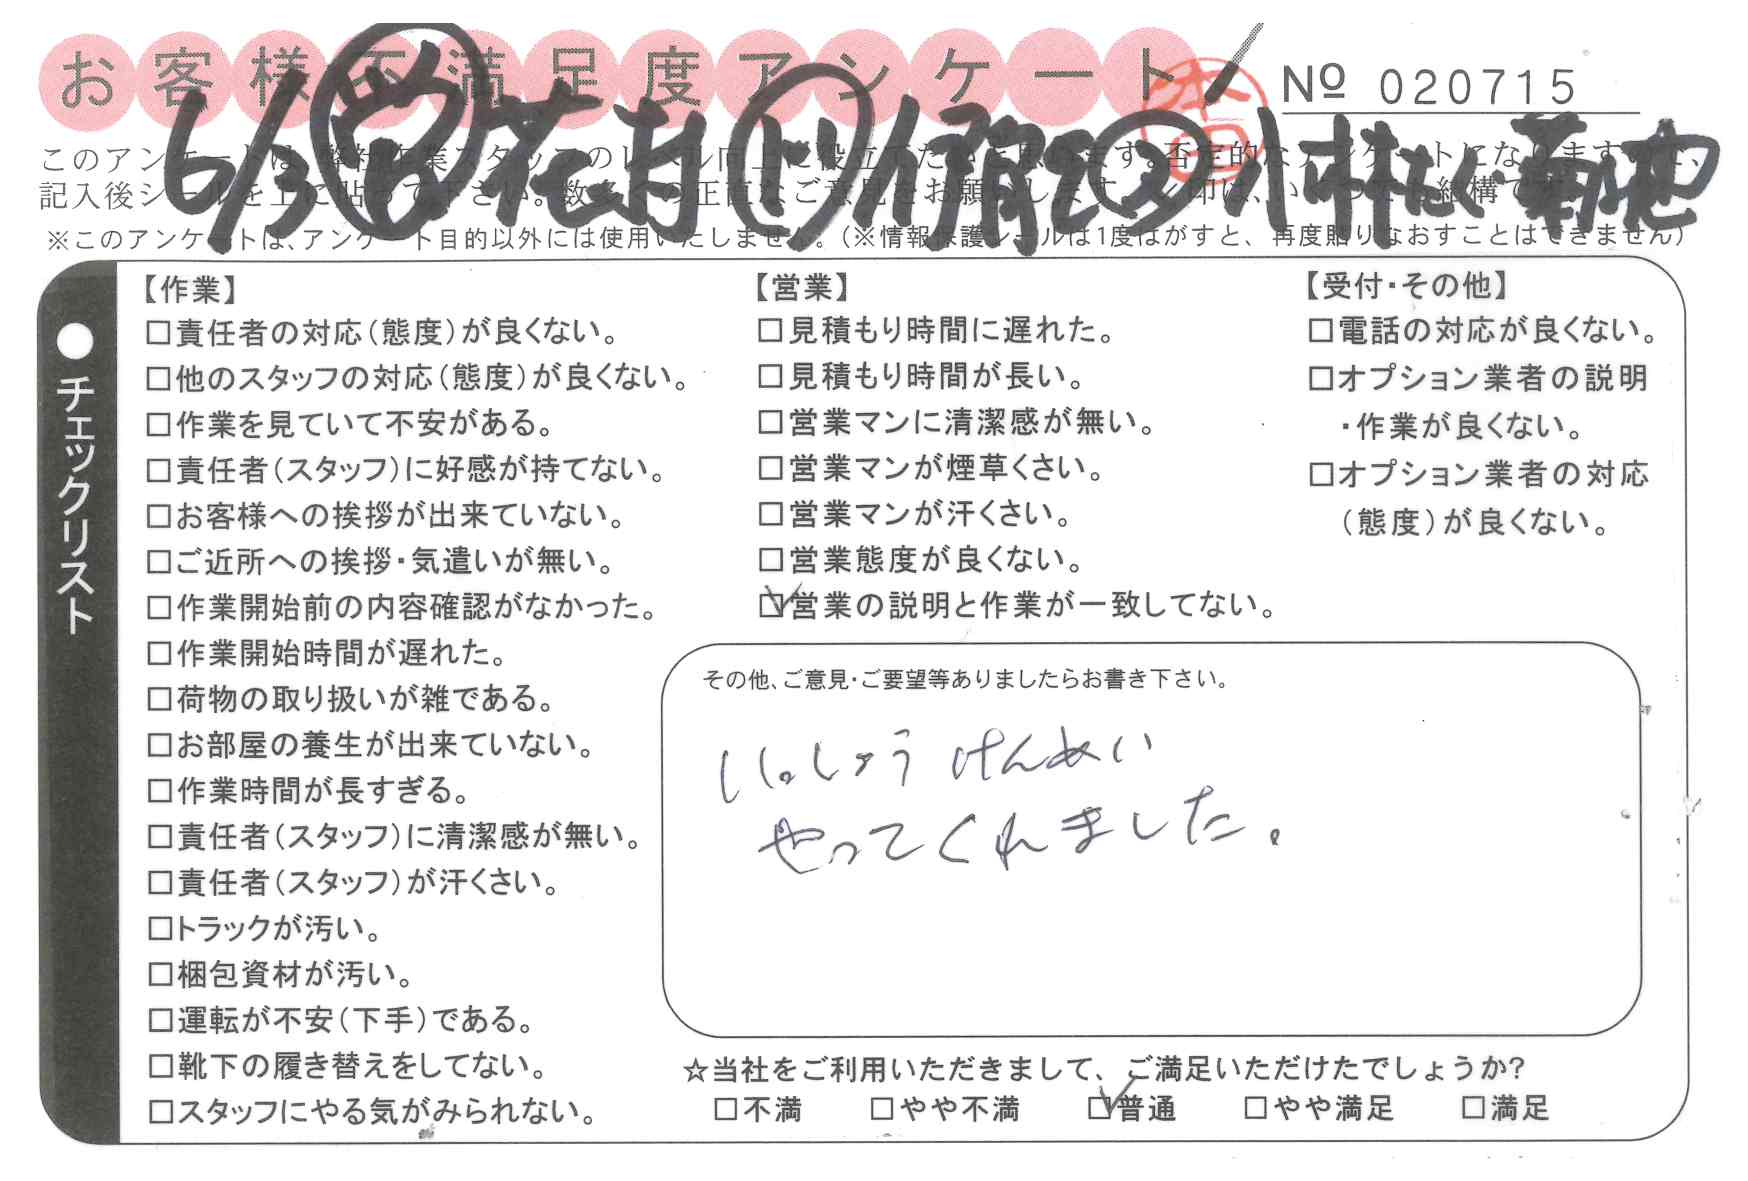 お客様不満足度アンケート
Nº 020715
6/3
このアンケートは、弊社作業スタッフのレベル向上に役立てたいと思います。否定的なアンケートになりますので、
記入後シールを上に貼って下さい。数多くの正直なご意見をお願いします。レ印は、いくつでも結構です。
※このアンケートは、アンケート目的以外には使用いたしません。(※情報保護シールは1度はがすと、再度貼りなおすことはできません)
●チェックリスト
【作業】
□責任者の対応(態度)が良くない。
□他のスタッフの対応(態度)が良くない。
□作業を見ていて不安がある。
□責任者(スタッフ)に好感が持てない。
□お客様への挨拶が出来ていない。
□ご近所への挨拶・気遣いが無い。
□作業開始前の内容確認がなかった。
□作業開始時間が遅れた。
□荷物の取り扱いが雑である。
□お部屋の養生が出来ていない。
□作業時間が長すぎる。
□責任者(スタッフ)に清潔感が無い。
□責任者(スタッフ)が汗くさい。
□トラックが汚い。
□梱包資材が汚い。
□運転が不安(下手)である。
□靴下の履き替えをしてない。
□スタッフにやる気がみられない。
【営業】
□見積もり時間に遅れた。
□見積もり時間が長い。
□営業マンに清潔感が無い。
□営業マンが煙草くさい。
□営業マンが汗くさい。
□営業態度が良くない。
☑営業の説明と作業が一致してない。
【受付・その他】
□電話の対応が良くない。
□オプション業者の説明
・作業が良くない。
□オプション業者の対応
(態度)が良くない。
その他、ご意見・ご要望等ありましたらお書き下さい。
いっしょうけんめい
やってくれました。
☆当社をご利用いただきまして、ご満足いただけたでしょうか?
□不満 □やや不満 ☑普通 □やや満足 □満足